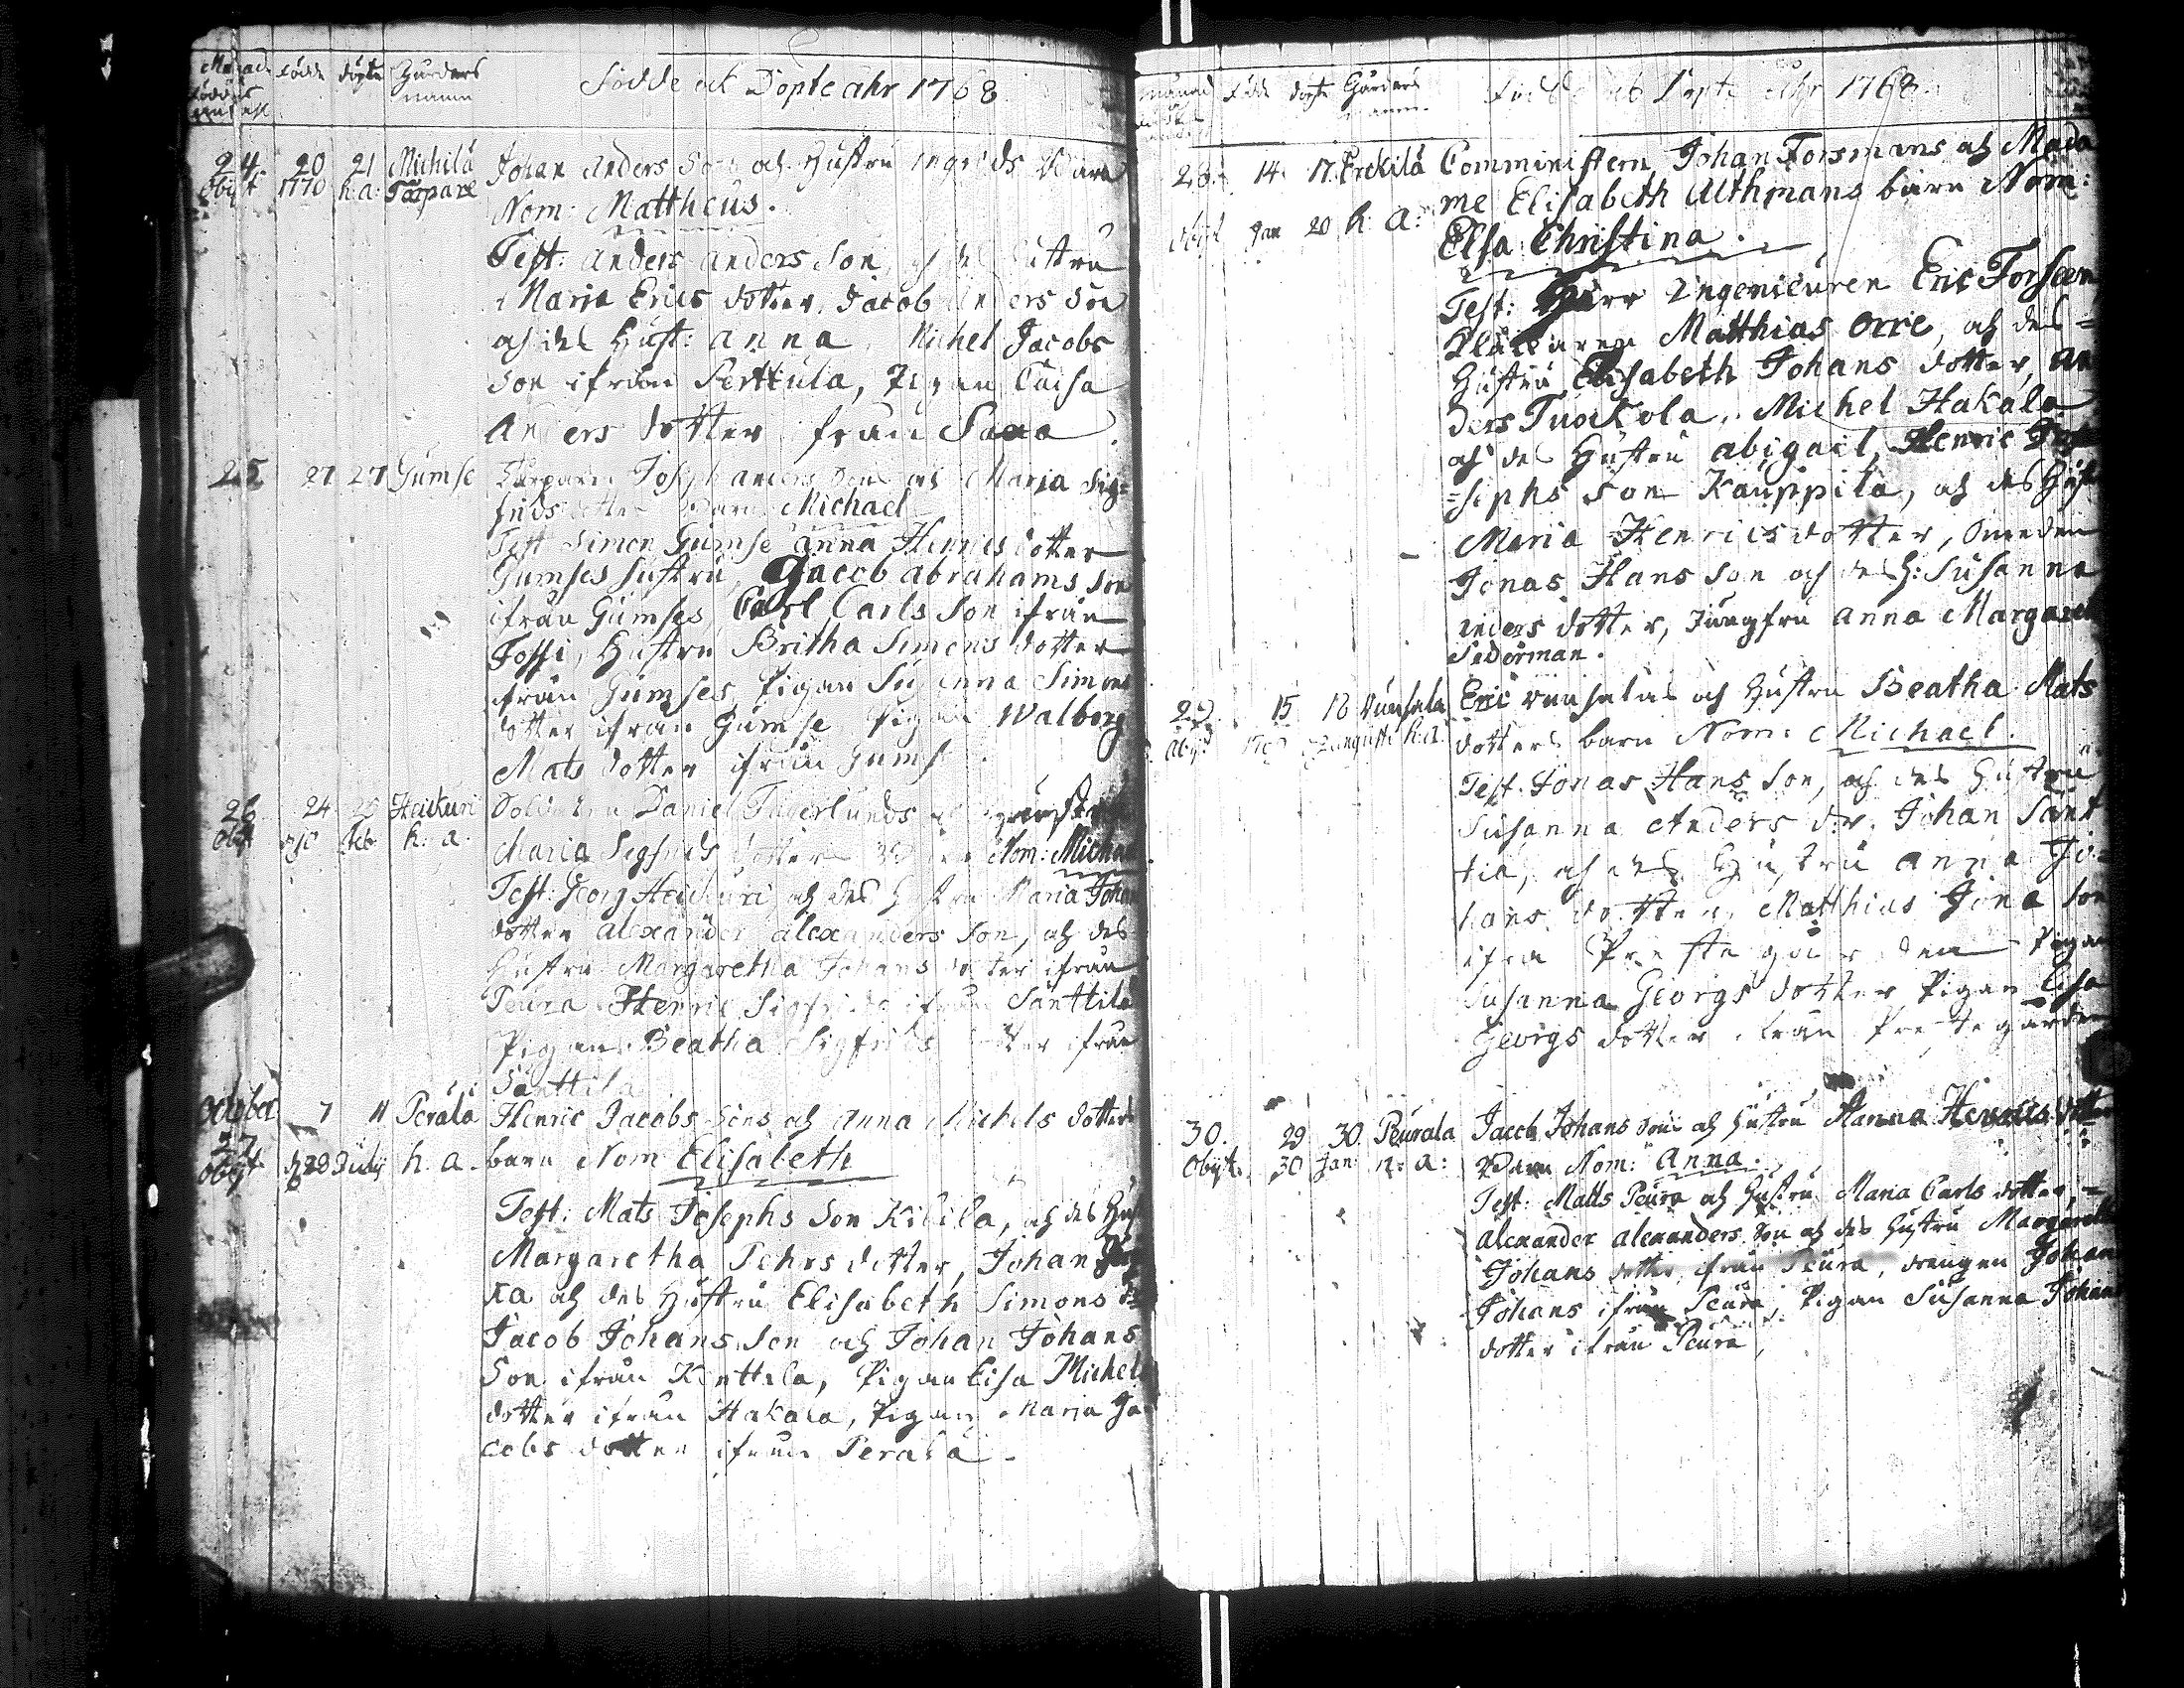 Månad födde döpte Gårdens namn Födde och Döpte åhr 1768
24. 20 21 Michila Johan Anders Sons och Hustru Ingrids Barn
Obijt 1770 h. a. Torpare Nom: Mattheus.
Test: Anders Anders Son, och des Hustru
Maria Erics dotter, Jacob Anders Son
och des Hust: Anna, Michel Jacobs
Son ifrån Perttula, Pigan Caisa
Anders dotter från
25 27 27 Gumse Torparen Joseph Anders Sons och Maria Sig=
frids dotters Barn Michael
Test Simon Gumse Anna Henrics dotter
Gumses hustru, Jacob Abrahams Son
ifrån Gumses, Carl Carls Son ifrån
Jossi, Hustru Britha Simons dotter
från Gumses, Pigan Susanna Simons
dotter ifrån Gumse, Pigan Walborg
Mats dotter ifrån Gumse
26 24 25 Heickuri Soldaten Daniel Fagerlunds och
Obijt h. a. Maria Sigfrids dotters Barn Nom: Micha
Test: Georg Heickuri, och des Hustru Maria Johans
dotter Alexander Alexanders Son, och des
Hustru Margaretha Johans dotter ifrån
Peura Henric Sigfrids ifrån Santtila
Pigan Beatha Sigfrids dotter ifrån
Santtila
October
27 7 11 Perälä Henric Jacobs Sons och Anna Michels dotters
Obijt 28 Julij h. a. barn Nom Elisabeth
Test: Mats Josephs Son Kikila, och des Hust
Margaretha Pehrs dotter, Johan
ka och des Hustru Elisabeth Simons
Jacob Johans Son och Johan Johans
Son ifrån Kenttala, Pigan Lisa Michels
dotter ifrån Hakala, Pigan Maria Ja
cobs dotter ifrån Perälä.
månad födde döpte Gårdens namn Födde och Döpte åhr 1768
28. 14. 17. Erckilä Comministern Johan Forsmans och Mada
me Elisabeth Althmans barn Nom:
Obijt Jan 20 h. a: Elsa Christina.
Test: Herr Ingenieuren Eric Forsem
Matthias Orre, och des =
Hustru Elisabeth Johans dotter, An
ders Tuockola, Michel Hakala
och des Hustru Abigail, Henric Jo
=sephs Son Kauppila, och des Hust
Maria Henrics dotter, Smeden
Jonas Hans Son och des H: Susanna
Anders dotter, Jungfru Anna Margaret
Sederman.
29. 15 18 Eric och Hustru Beatha Mats
Obijt Augusti h. a. dotters barn Nom: Michael.
Test. Jonas Hans Son, och des Hustru
Susanna Anders dr. Johan Sant
tia, och des Hustru Anna Jo=
hans dotter, Matthias Jona Son
ifrå Prestegården Pigan
Susanna Georgs dotter Pigan Lisa
Georgs dotter från Prestegården
30. 29 30. Peurala Jacob Johans Sons och Hustru Hanna Henrics dotters
Obijt. 30 Jan: h: a: Barn Nom: Anna.
Test: Matts Peura och Hustru Maria Carls dotter, =
Alexander Alexanders Son och des Hustru Margareta
Johans dotter ifrån Peura, drengen Johan
Johans ifrån Peura, Pigan Susanna Johans
dotter ifrån Peura,